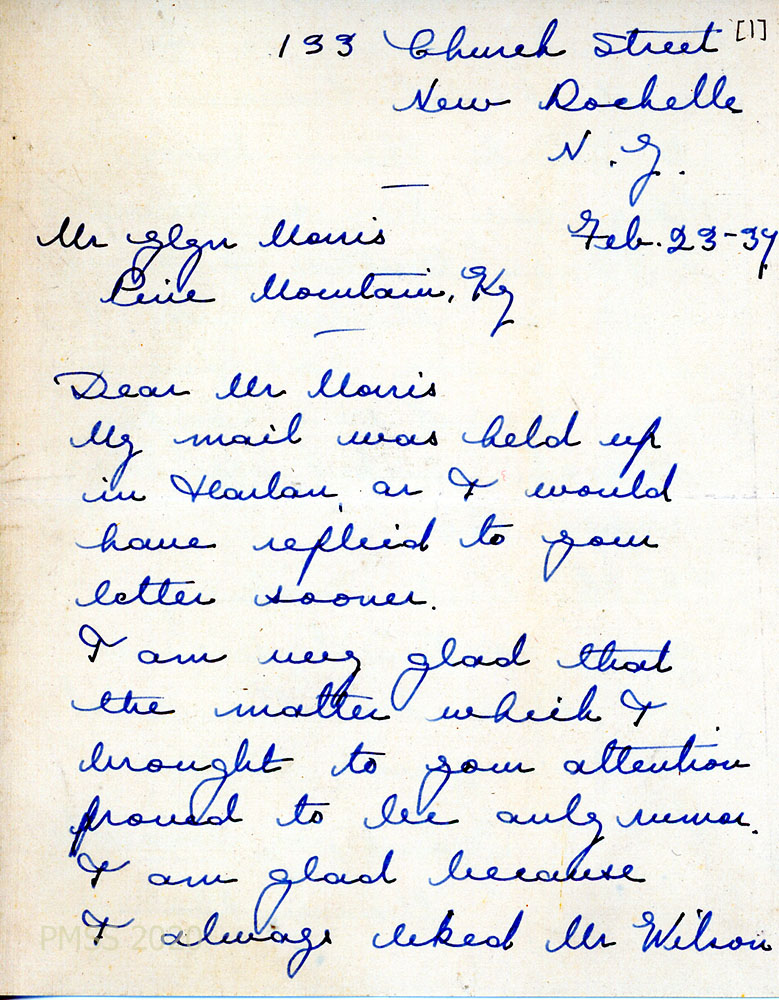 133 Church Street [1]
New Rochelle
N.Y.
Mr Glyn Morris Feb. 23-37
Pine Mountain, Ky
Dear Mr Morris
My mail was held up
in Harlan, or I would
have replied to your
letter sooner.
I am very glad that
the matter which I
brought to your attention
proved to be only rumor.
I am glad because
I always liked Mr Wilson
PMSS 2020